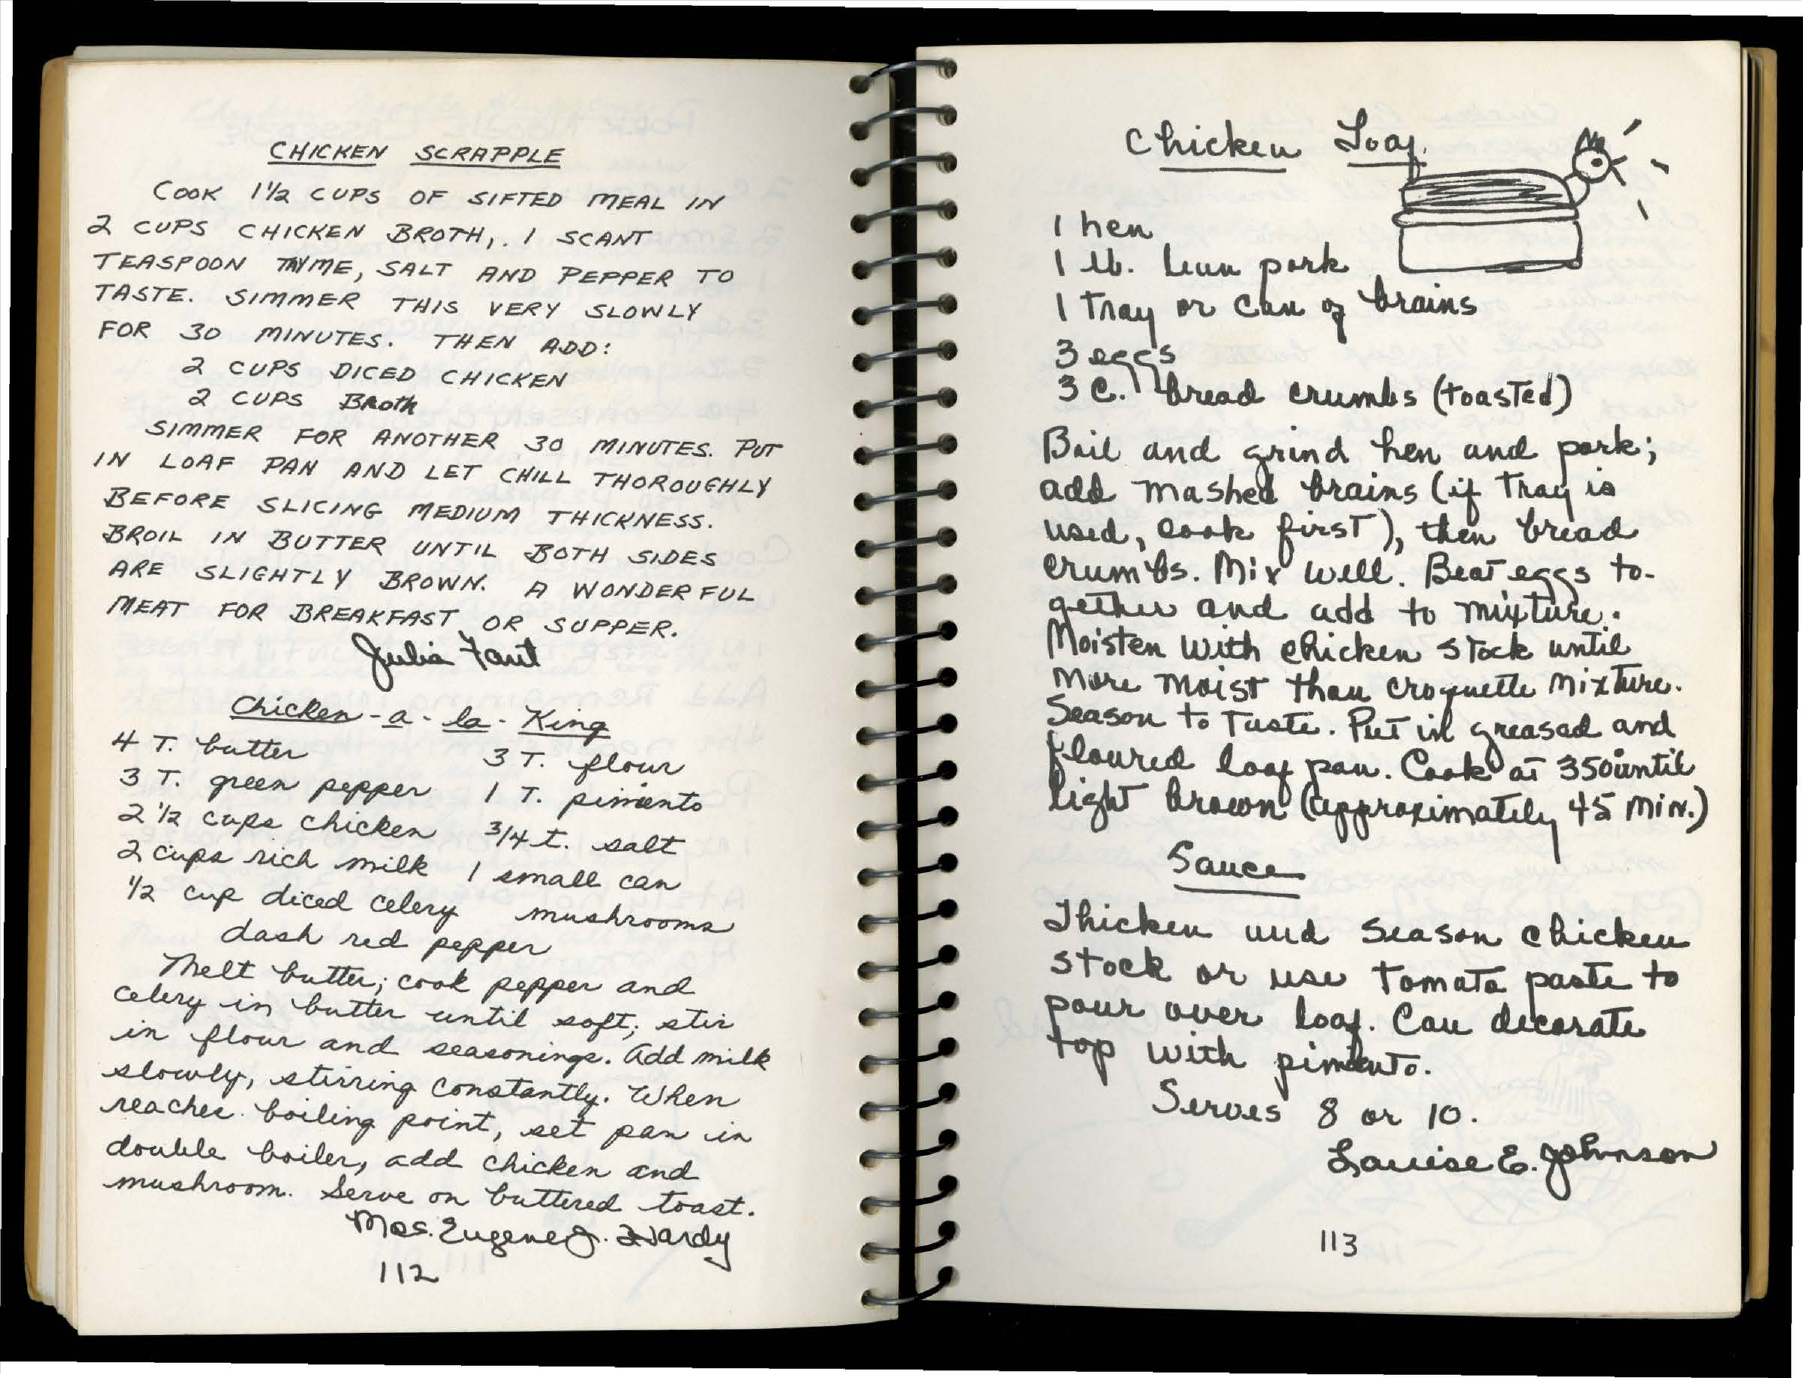 CHICKEN SCRAPPLE
COOK 1½ CUPS OF SIFTED MEAL IN
2 CUPS CHICKEN BROTH,. 1 SCANT
TEASPOON THYME, SALT AND PEPPER TO
TASTE. SIMMER THIS VERY SLOWLY
FOR 30 MINUTES. THEN ADD:
2 CUPS DICED CHICKEN
2 CUPS Broth
SIMMER FOR ANOTHER 30 MINUTES. PUT
IN LOAF PAN AND LET CHILL THOROUGHLY
BEFORE SLICING MEDIUM THICKNESS.
BROIL IN BUTTER UNTIL BOTH SIDES
ARE SLIGHTLY BROWN. A WONDERFUL
MEAT FOR BREAKFAST OR SUPPER.
Julia Faut
Chicken-a-la-King
4 T. butter 3 T. flour
3 T. green pepper 1 T. pimiento
2 ½ cups chicken ¾ t. salt
2 cups rich milk 1 small can
½ cup diced celery mushrooms
dash red pepper
Melt butter; cook pepper and
celery in butter until soft; stir
in flour and seasonings. Add milk
slowly, stirring constantly. When
reaches boiling point, set pan in
double boiler, add chicken and
mushroom. Serve on buttered toast.
Mrs. Eugene J. Hardy
112
Chicken Loaf
1 hen
1 lb. lean pork
1 tray or can of brains
3 eggs
3 C. bread crumbs (toasted)
Boil and grind hen and pork;
add mashed brains (if tray is
used, cook first), then bread
crumbs. Mix well. Beat eggs to-
gether and add to mixture.
Moisten with chicken stock until
more moist than croquette mixture.
Season to taste. Put in greased and
floured loaf pan. Cook at 350° until
light brown (approximately 45 min.)
Sauce
Thicken and season chicken
stock or use tomato paste to
pour over loaf. Can decorate
top with pimento.
Serves 8 or 10.
Louise E. Johnson
113